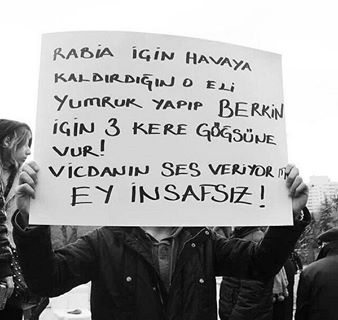 RABİA İÇİN HAVAYA
KALDIRDIĞIN O ELİ
YUMRUK YAPIP BERKİN
İÇİN 3 KERE GÖĞSÜNE
VUR!
VİCDANIN SES VERİYOR MU
EY İNSAFSIZ!